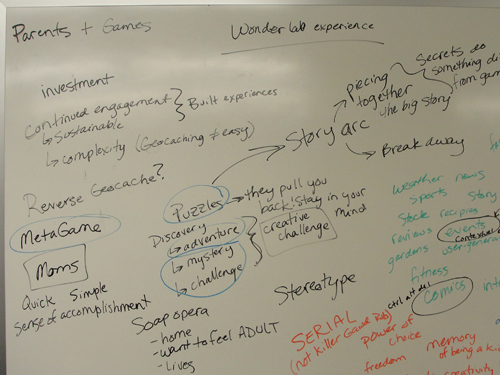 Parents + Games
Wonder lab experience
investment
Continued engagement
↳ Sustainable
↳ complexity (Geocaching ≠ easy)
Built experiences
Reverse Geocache?
MetaGame
Moms
Quick Simple
sense of accomplishment
Puzzles → they pull you
back/stay in your
mind
Discovery
↳ adventure
↳ mystery
↳ challenge
creative
challenge
Soap opera
- home
- want to feel ADULT
- Lives
Story arc
piecing
together
the big story
Secrets do
something
from
Break away
Stereotype
weather news
sports story
stock recipies
reviews events
gardens
fitness
Comics
SERIAL
(not Killer
power of
choice
freedom
memory
of being a
creativity